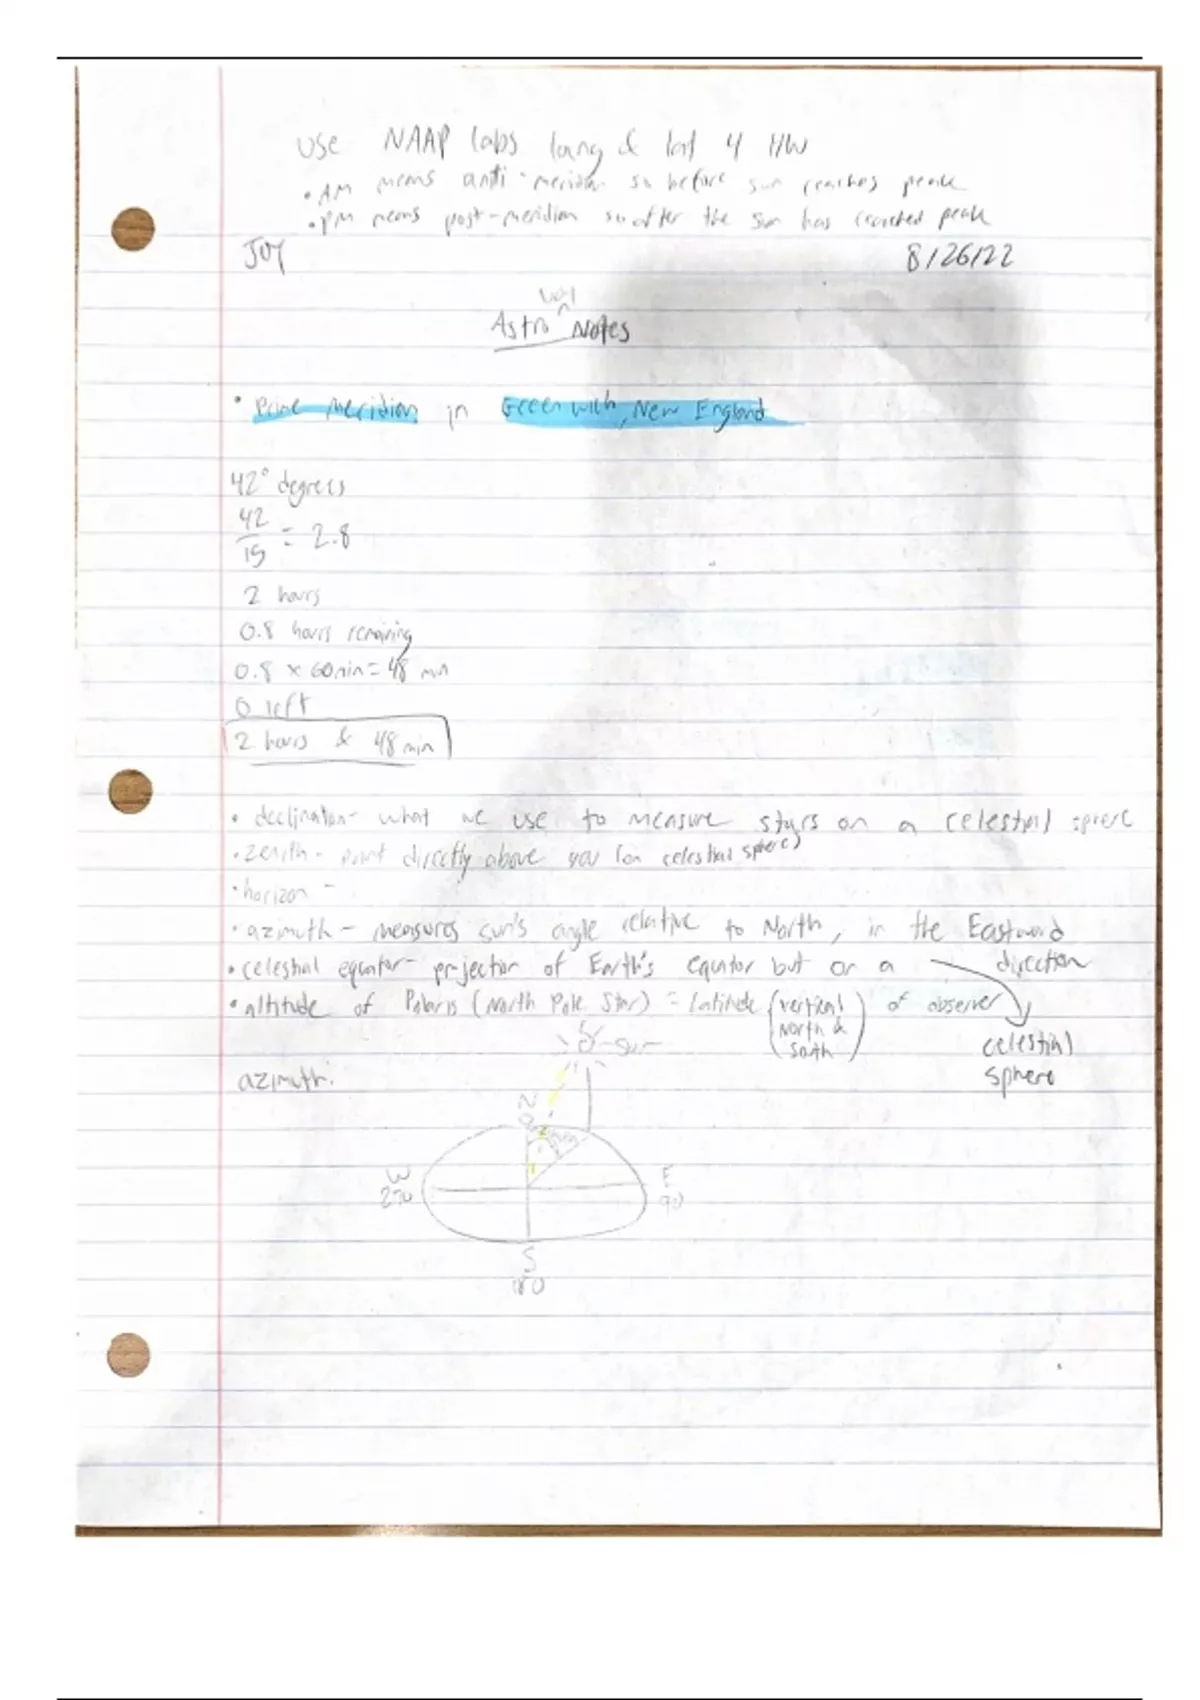 USE NAAP labs long & lat 4 HW
• AM means anti-meridian so before sun reaches peak
• PM means post-meridian so after the sun has reached peak
JOY 8/26/22
Astro Notes
• Prime Meridian in Greenwich, New England
42° degrees
42/15 = 2.8
2 hours
0.8 hours remaining
0.8 x 60min = 48 min
0 left
2 hours & 48 min
• declination- what we use to measure stars on a celestial sphere
• zenith - point directly above you (on celestial sphere)
• horizon -
• azimuth - measures sun's angle relative to North, in the Eastward direction
• celestial equator- projection of Earth's equator but on a celestial sphere
• altitude of Polaris (North Pole Star) = latitude (vertical North & South) of observer
Sun
azimuth:
N
0
W
270
E
90
S
180